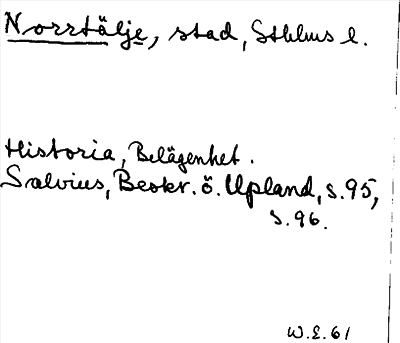 Norrtälje, stad, Sthlms l.
Historia, Belägenhet.
Salvius, Beskr. ö. Upland, s. 95,
s. 96.
W.E. 61